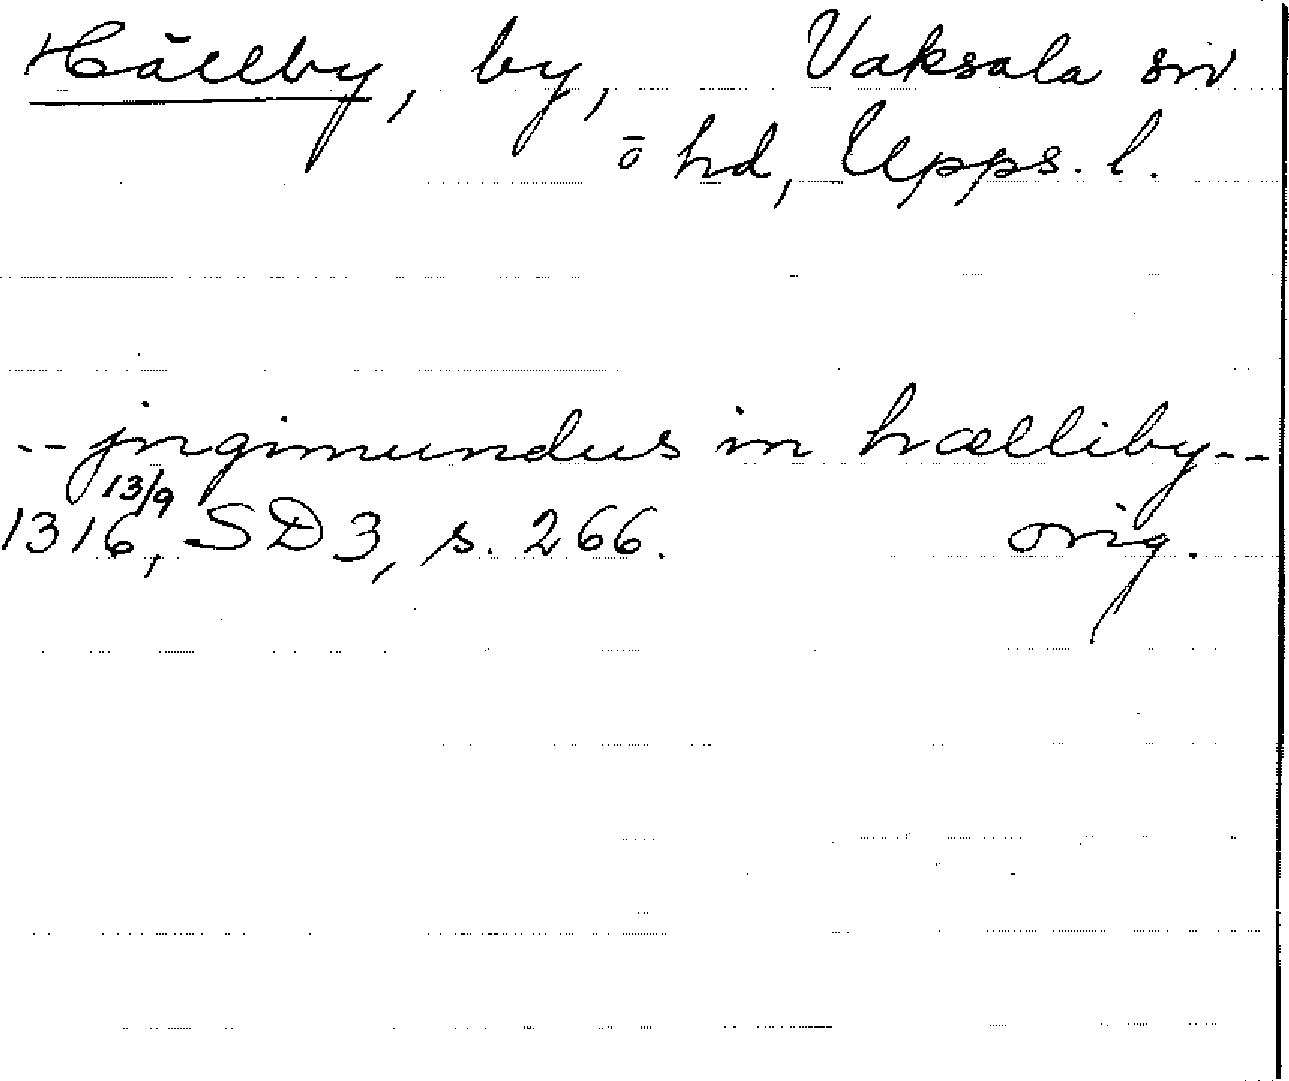 Hällby, by, Vaksala sn
ö hd, Upps. l.
-- jngimundus in hælliby --
13/9
1316, SD 3, s. 266. orig.